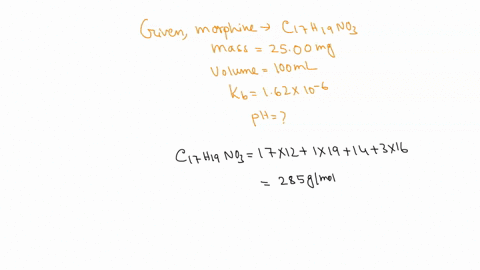 Given, morphine → C₁₇H₁₉NO₃
mass = 25.00 mg
Volume = 100mL
Kb = 1.62 × 10⁻⁶
pH = ?
C₁₇H₁₉NO₃ = 17×12 + 1×19 + 14 + 3×16
= 285 g/mol